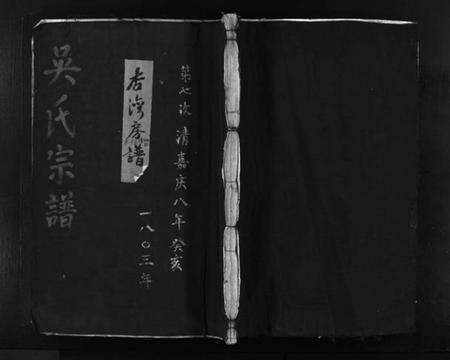 第七次 清嘉庆八年癸亥
一八〇三年
杏湾房譜
吳氏宗譜